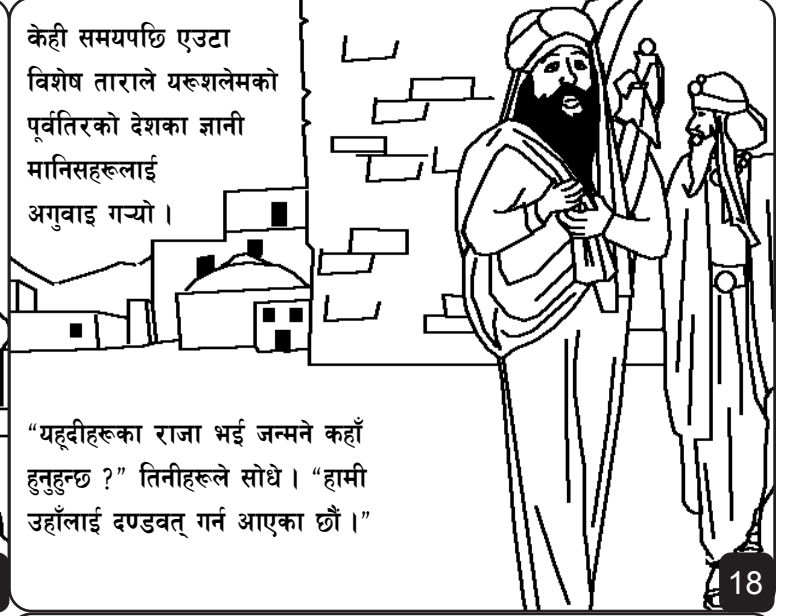 केही समयपछि एउटा
विशेष ताराले यरूशलेमको
पूर्वतिरको देशका ज्ञानी
मानिसहरूलाई
अगुवाइ गऱ्यो ।
“यहूदीहरूका राजा भई जन्मने कहाँ
हुनुहुन्छ ?” तिनीहरूले सोधे । “हामी
उहाँलाई दण्डवत् गर्न आएका छौं ।”
18